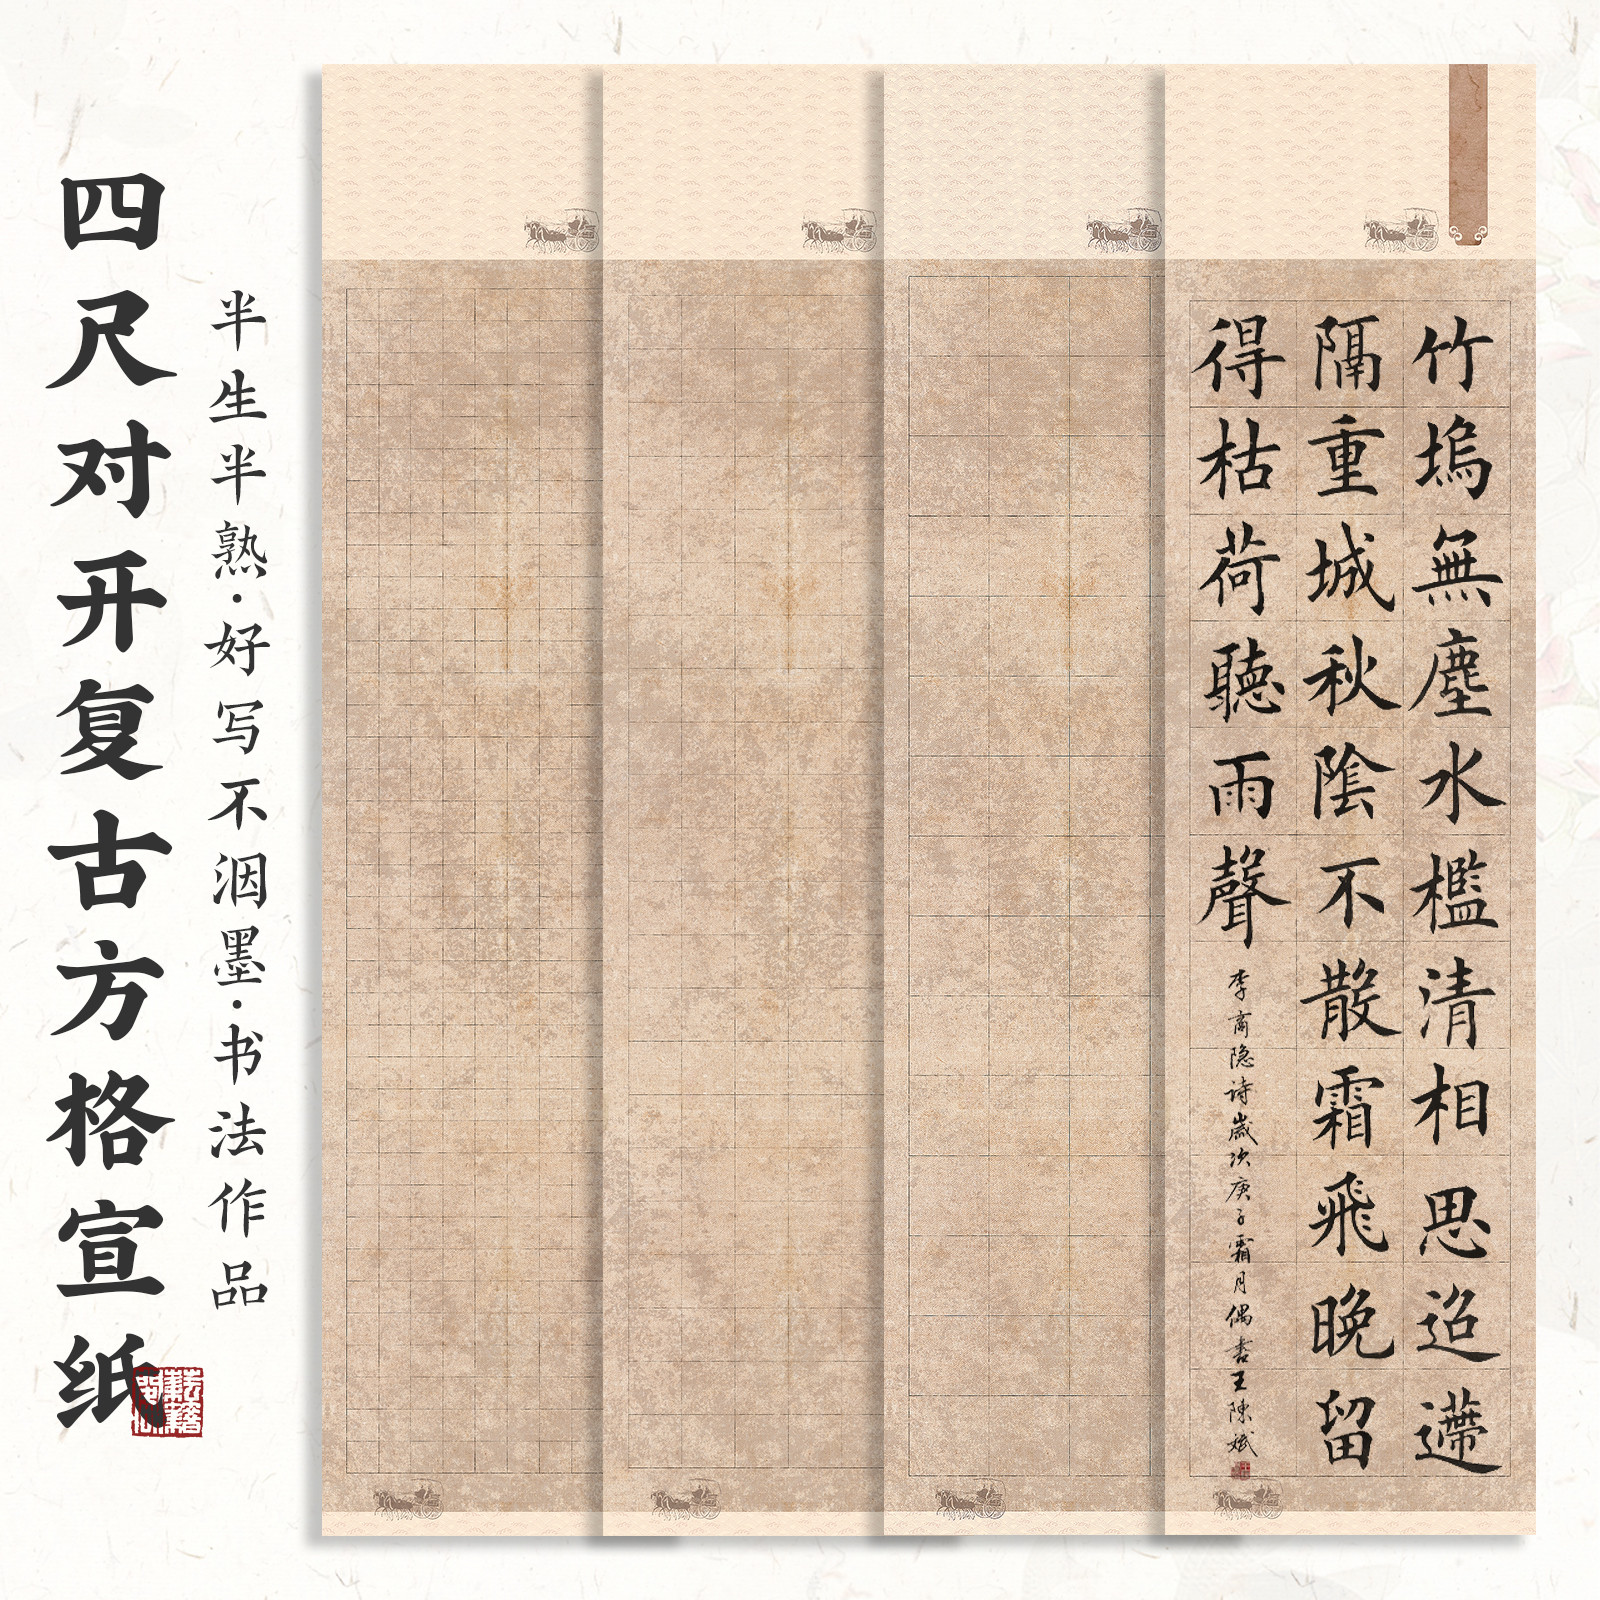 四尺对开复古方格宣纸
半生半熟·好写不洇墨·书法作品
竹塢無塵水檻清相思迢遰
隔重城秋陰不散霜飛晚留
得枯荷聽雨聲
李商隐诗歲次庚子霜月偶书王陳斌